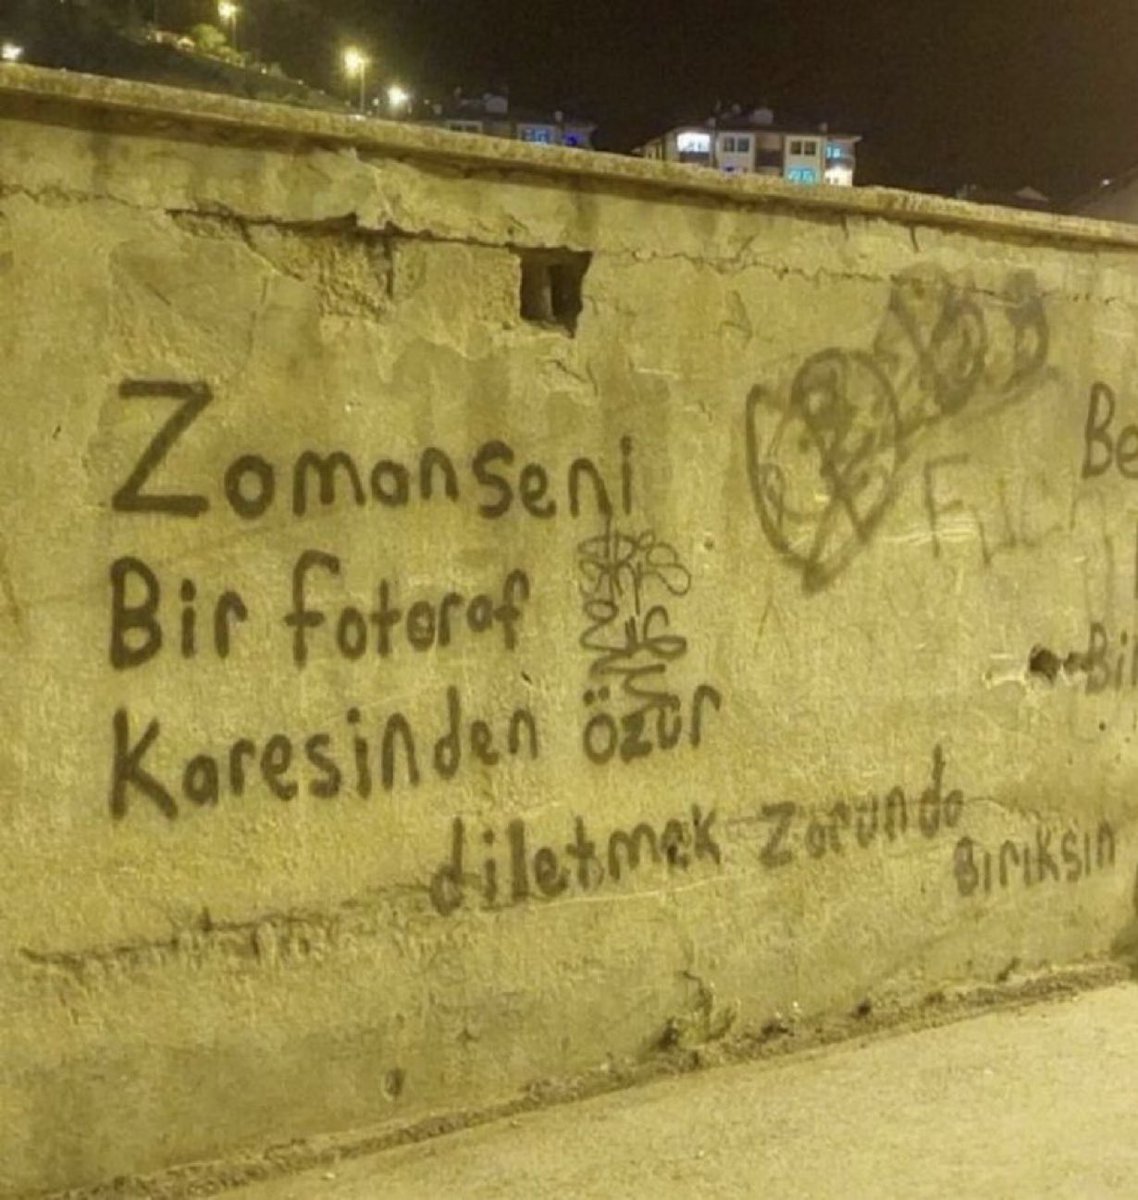 Zaman seni
Bir fotoraf
Karesinden özür
diletmek zorunda
Bırıksın